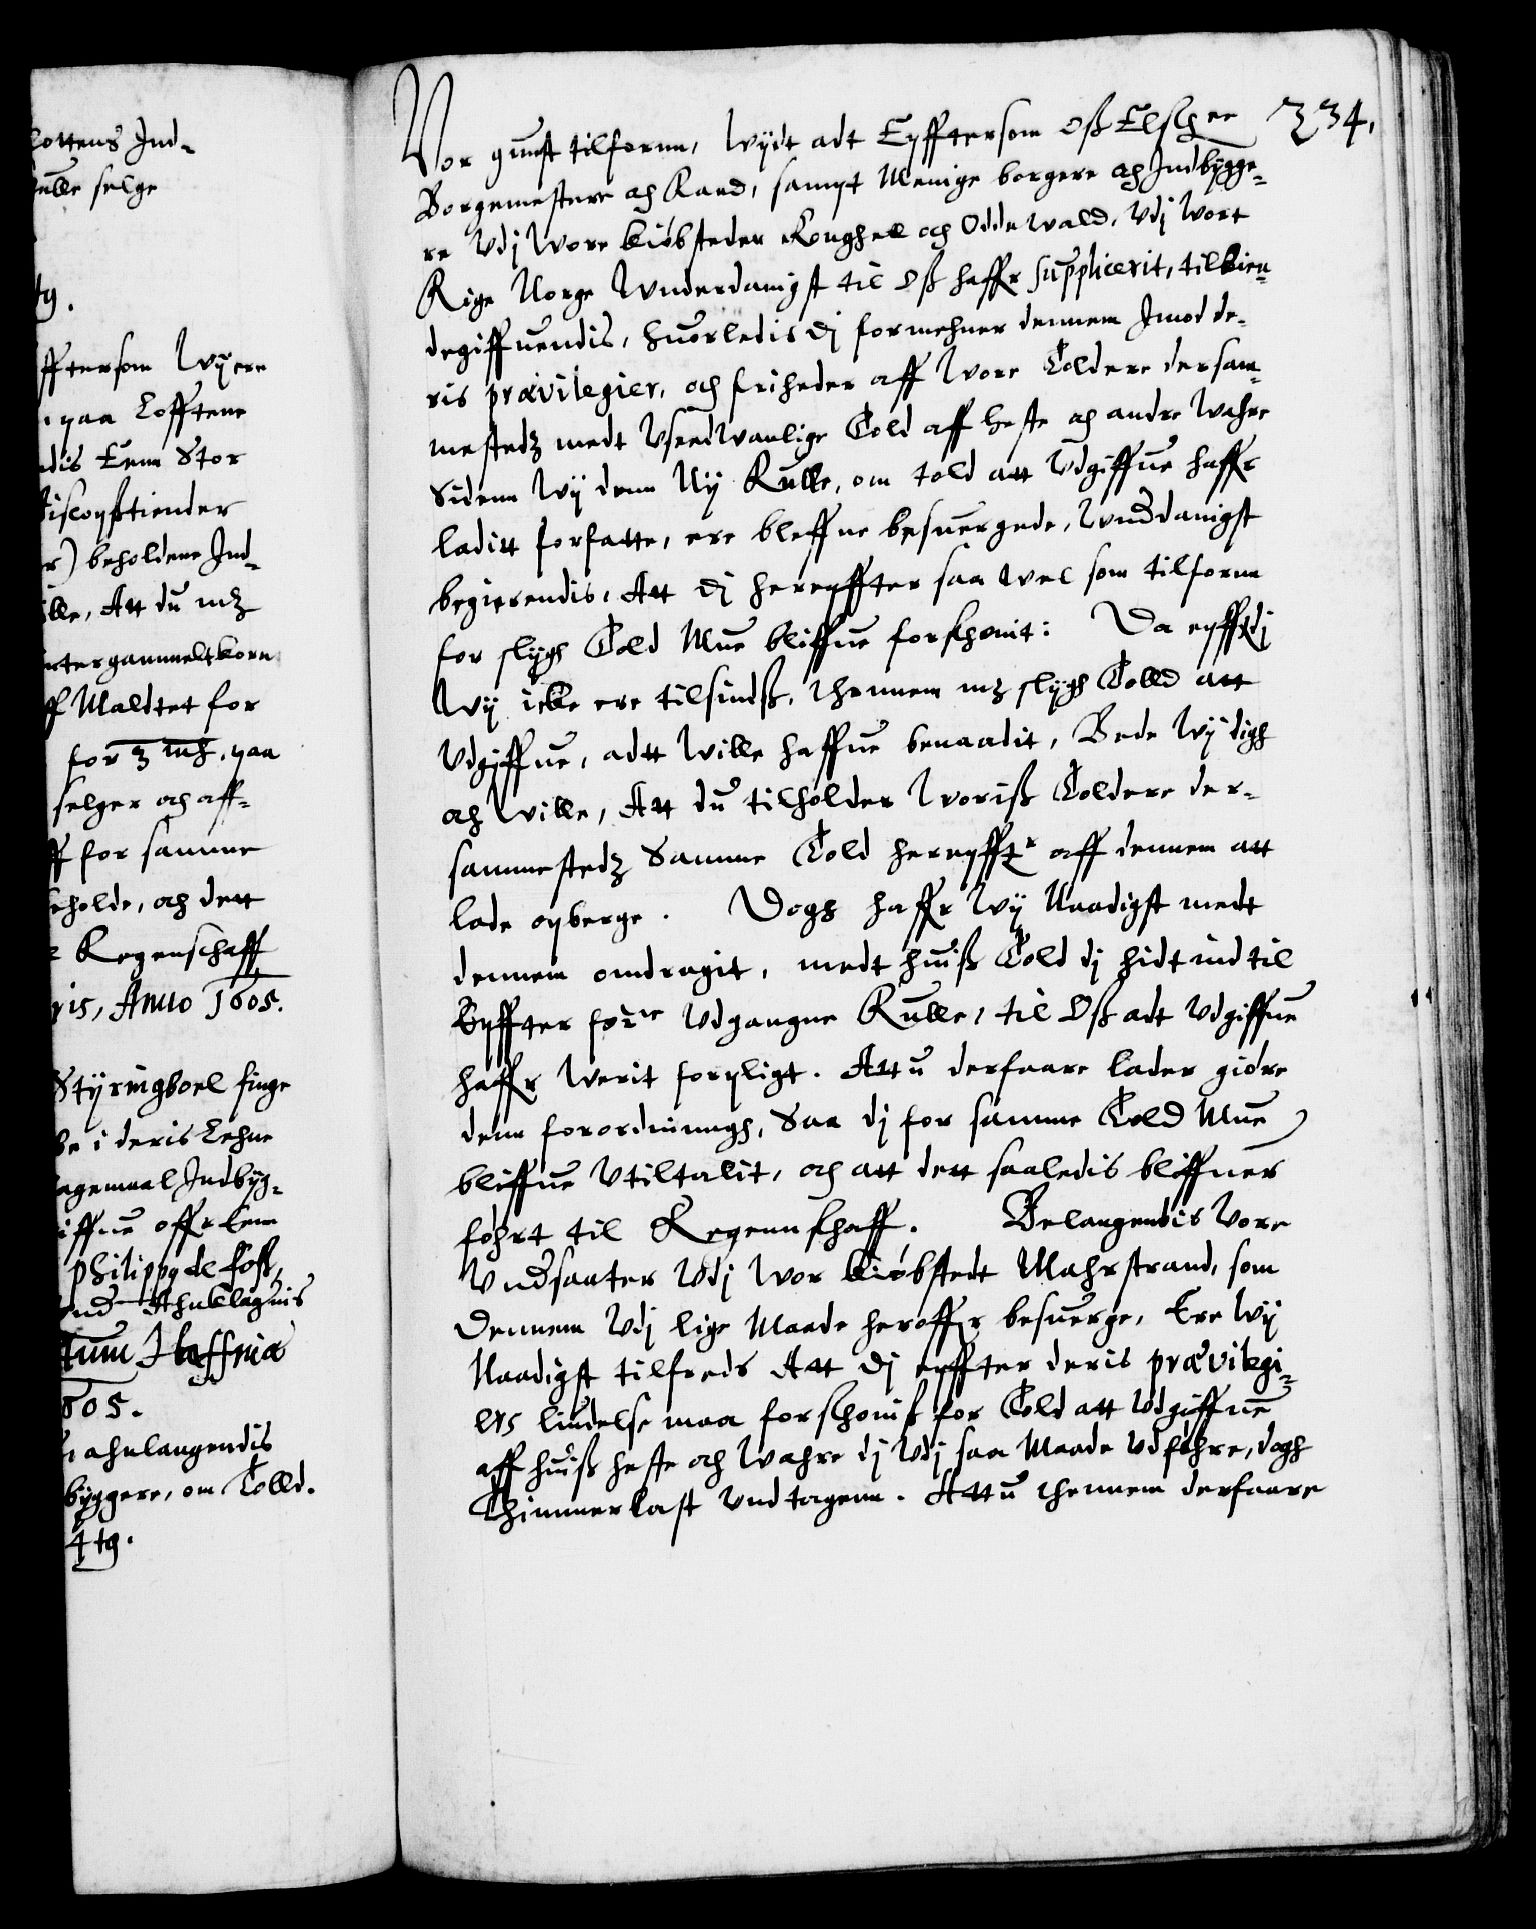 lottens Ind-
kulle selge
tg.
ffttersom Wy ere
paa Lofftene
ndis Eenn Stor
Biscopstiender
r) beholdene Ind-
ille, Att du mz
rter gammelt korn
ff Maldtet for
for 3 mk. paa
selger och aff-
ff for samme
beholde, och dett
Regenschaff
ris, Anno 1605.
Styringboel finge
be i deris Lehne
agemaal Indbyg-
iffue offr Eenn
Philippy de Foss,
Ahnklagnis
tum Haffniæ
605.
ahnlangendis
byggere, om Tolld.
4 tg.
234.
Vor gunst tilfornn, Wydt adt Eyfftersom Oss Elschee
Borgemestere och Raad, sampt Menige borgere och Indbygge-
re Vdj Wore kiøbsteder Konghell och Oddewald, Vdj Vort
Rige Norge Wnderdanigst til Oss haffr suppliceritt, tilkien-
degiffuendis, huorledis dj formehner dennem Imod de-
ris prævilegier, och friheder aff Wore Toldere dersam-
mestedz medt Vseedwanlige Told aff heste och andre Wahre
Sidenn Wy denn Ny Rulle, om told att Vdgiffue haffr
laditt forfatte, ere bleffne besuergede, Wnddanigst
begierendis, Att dj hereyffter saa wel som tilfornn
for slygh Told Mue bliffue forskonit: Da eyfftdj
Wy icke ere tilsindss, thennem mz slygh Tolld att
Vdgiffue, adtt Wille haffue benaadit, Bede Wy digh
och Wille, Att du tilholder Woriss Toldere der-
sammestedz Samme Told hereyfftr aff dennem att
lade opberge. Dogh haffr Wy Naadigst medt
dennem omdragit, medt huiss Told dj hidtindtil
Eyffter forne Vdgangne Rulle, til Oss adt Vdgiffue
haffr Werit forpligt. Attu derfaare lader giöre
denn forordningh, Saa dj for samme Told Mue
bliffue Vtiltalit, och att dett saaledis bliffuer
föhrt til Regennskaff. Belangendis Vore
Vndsaater Vdj Wor kiøbstedt Mahrstrand, som
Dennem Vdj lige Maade heroffr besuerge, Ere Wy
Naadigst tilfreds Att dj eyffter deris prævilegi-
ers liudelse maa forskoniss for Told att Vdgiffue
aff huiss heste och Wahre dj Vdj saa Maade Vdføhre, dogh
Thimmerlast Vndtagenn. Attu thennem derfaare